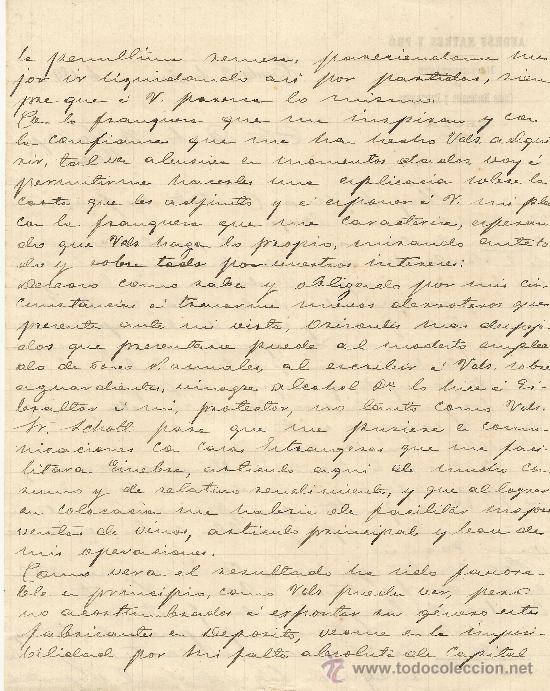 la penultima remesa, pareciendome me
jor ir liquidando asi por partidas, siem
pre que á V. parezca lo mismo.
Con la franqueza que me inspiran y con
la confianza que me ha hecho Vds. adqui
rir, tal vez en momentos dados, voy á
permitirme hacerles una esplicacion sobre la
carta que les adjunto y á esponer á V. mi plan
con la franqueza que me caracteriza, esperan
do que Vds haga lo propio, mirando ante to
do y sobre todo por nuestros intereses:
Deseoso como sabe y obligado por mis cir
cunstancias á trazarme nuevos derroteros que
presenta ante mi vista, horizontes mas despeja
dos que presentarse puede al modesto emplea
do de anuales, al escribir á Vds. sobre
aguardientes, vinagre alcohol &a lo hice á Gi
braltar á mi, protector, no tanto como Vds.
Sr. Schott para que me pusiese en comu
nicaciones con casas Extrangeras que me faci
litara Ginebra, articulo aqui de mucho con
sumo y de relativo rendimiento, y que al lograr
su colocacion me habria de facilitar mayores
ventas de vinos, articulo principal y base de
mis operaciones.
Como vera el resultado ha sido favora
ble en principio, como Vds puede ver, pero
no acostumbrados á exportar su género estos
fabricantes en Deposito, veome en la imposi
bilidad por mi falta absoluta de Capital
www.todocoleccion.net